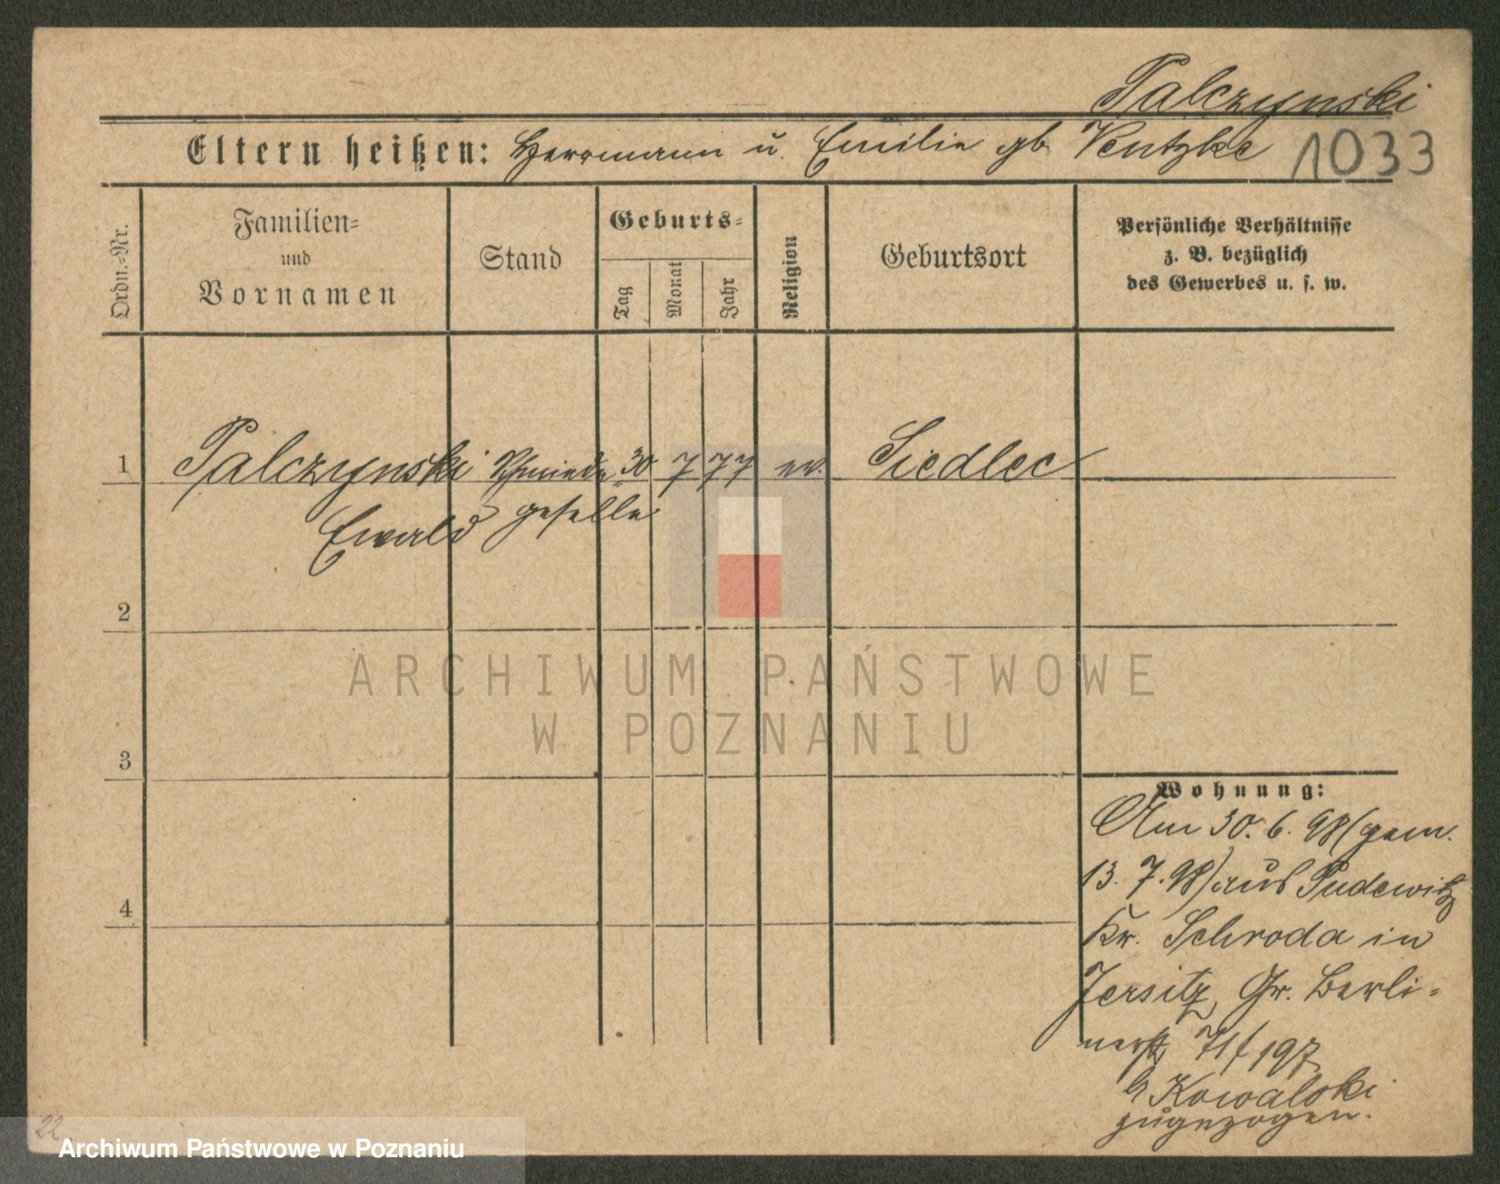 Palczynski
Eltern heißen: Herrmann u. Emilie gb Ventzke 1033
Ordn.-Nr.
Familien-
und
Vornamen
Stand
Geburts-
Tag
Monat
Jahr
Religion
Geburtsort
Persönliche Verhältnisse
z. B. bezüglich
des Gewerbes u. s. w.
1 Palczynski Schmiede 30. 7 77 ev. Siedlec
Ewald geselle
2
3
4
Wohnung:
Am 30. 6. 98 (gem.
13. 7. 98) aus Pudewitz
Kr. Schroda in
Jersitz, Gr. Berli-
nerstr. 71 / 197
b Kowalski
zugezogen.
22
ARCHIWUM PAŃSTWOWE
W POZNANIU
Archiwum Państwowe w Poznaniu